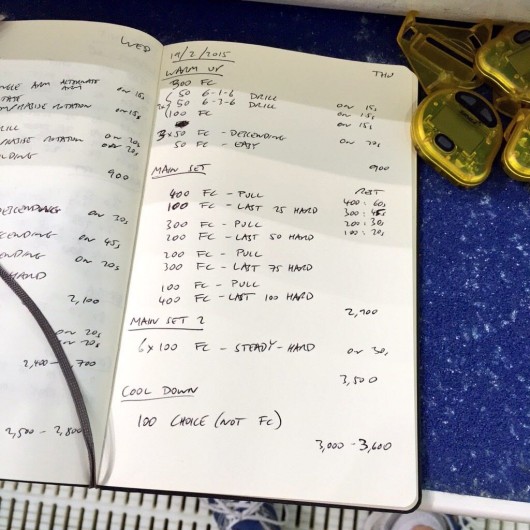 WED
NGLE ARM ALTERNATE
ARM on 15s
TATE
EMPHASISE ROTATION on 15s
RILL
PHASISE ROTATION on 20s
LDING on 20s
900
DESCENDING on 30s
CENDING on 45s
ENDING on 20s
HARD
2,100
on 20s
on 20s
2,400 - 2,700
2,500 - 2,800
19/2/2015
THU
WARM UP
300 FC
50 6-1-6 DRILL on 15s
50 6-3-6 DRILL on 15s
100 FC on 15s
3x50 FC - DESCENDING
50 FC - EASY on 20s
900
MAIN SET
REST
400 FC - PULL 400: 60s
100 FC - LAST 25 HARD 300: 45s
300 FC - PULL 200: 30s
200 FC - LAST 50 HARD 100: 20s
200 FC - PULL
300 FC - LAST 75 HARD
100 FC - PULL
400 FC - LAST 100 HARD
2,900
MAIN SET 2
6x100 FC - STEADY-HARD on 30s
3,500
COOL DOWN
100 CHOICE (NOT FC)
3,000 - 3,600